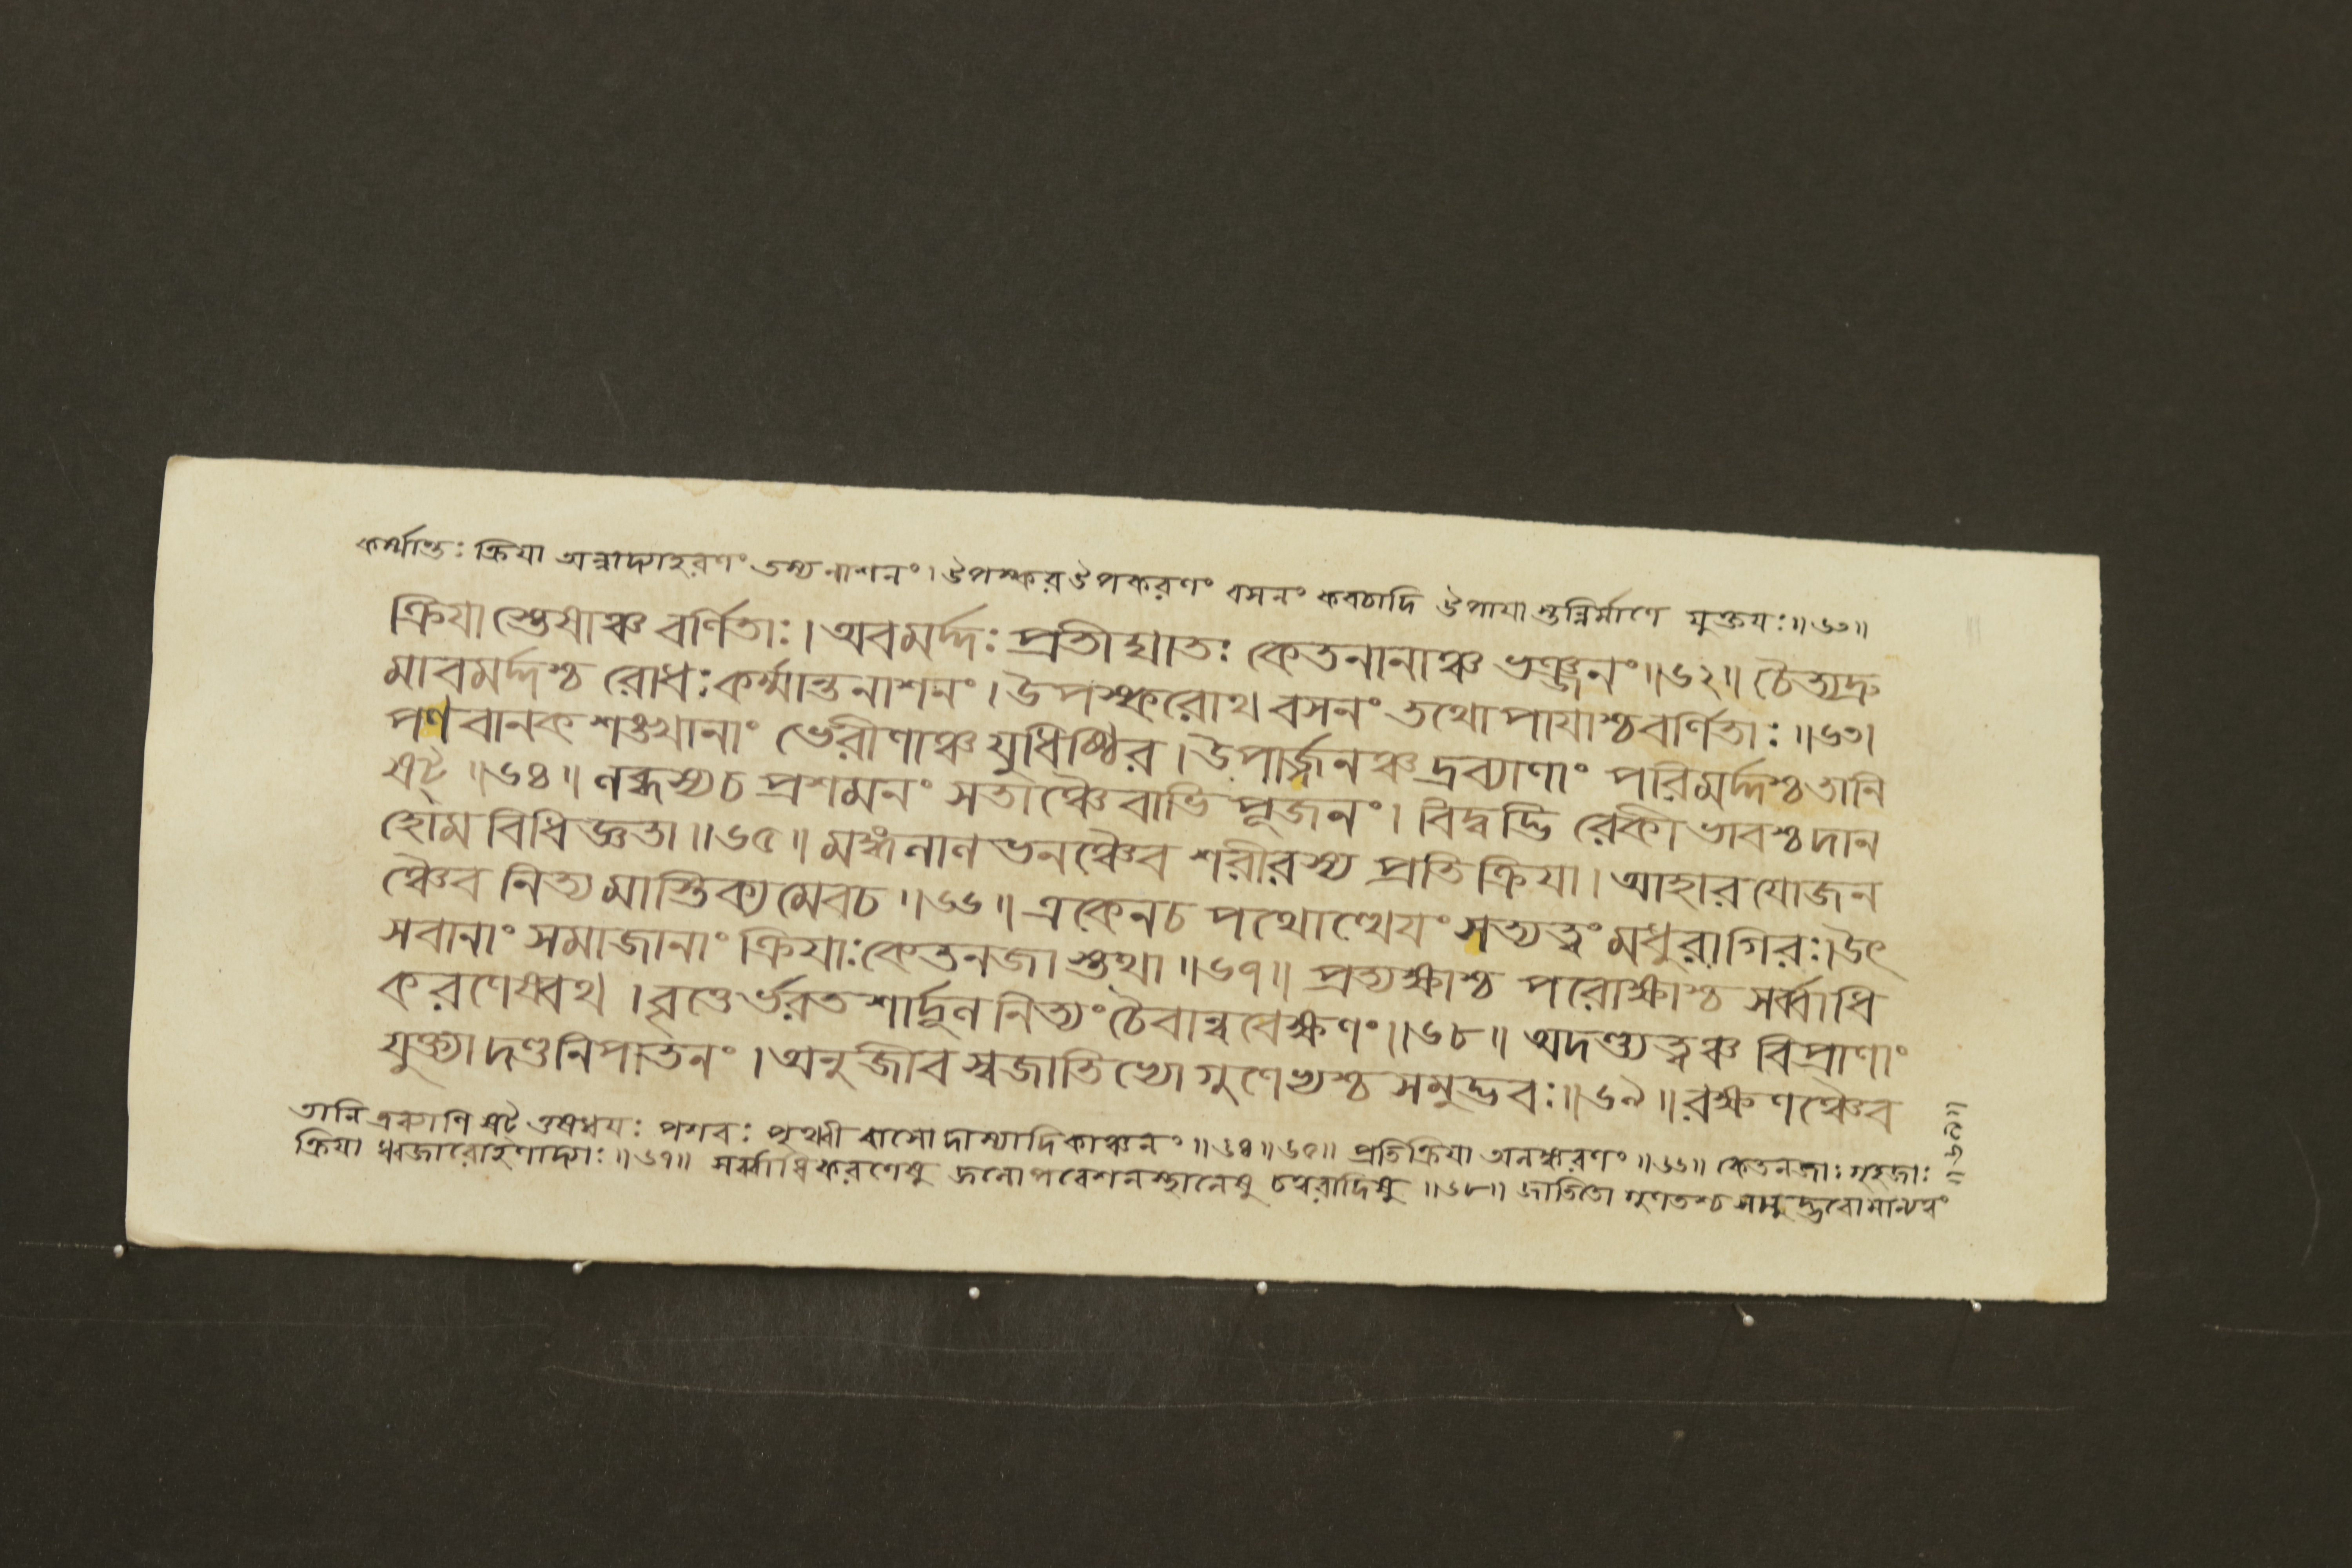 কর্ম্মান্তঃ ক্রিযা অন্নাদ্যাহরণং তস্য নাশনং। উপস্কর উপকরণং বসনং কবচাদি উপাযাস্তন্নির্মাণে যুক্তযঃ॥৬৩॥
ক্রিযাস্তেষাঞ্চ বর্ণিতাঃ। অবমর্দ্দঃ প্রতীঘাতঃ কেতনানাঞ্চ ভঞ্জনং॥৬২॥ চৈত্যদ্রু
মাবমর্দ্দশ্চ রোধঃ কর্ম্মান্তনাশনং। উপস্করোথ বসনং তথোপাযাশ্চ বর্ণিতাঃ॥৬৩।
পণবানকশঙ্খানাং ভেরীণাঞ্চ যুধিষ্ঠির। উপার্জ্জনঞ্চ দ্রব্যাণাং পরিমর্দ্দশ্চ তানি
ষট্ ॥৬৪॥ লব্ধস্য চ প্রশমনং সতাঞ্চৈবাভিপূজনং। বিদ্বদ্ভিরেকীভাবশ্চ দান
হোমবিধিজ্ঞতা॥৬৫॥ মঙ্গলালভনঞ্চৈব শরীরস্য প্রতিক্রিযা। আহারযোজন
ঞ্চৈব নিত্যমাস্তিক্যমেবচ॥৬৬॥ একেনচ পথোত্থেযং সত্যত্বং মধুরাগিরঃ। উৎ
সবানাং সমাজানাং ক্রিযাঃ কেতনজাস্তথা॥৬৭॥ প্রত্যক্ষাশ্চ পরোক্ষাশ্চ সর্ব্বাধি
করণেষ্বথ। বৃত্তের্ভরতশার্দ্দূল নিত্যং চৈবান্ববেক্ষণং॥৬৮॥ অদণ্ড্যত্বঞ্চ বিপ্রাণাং
যুক্ত্যা দণ্ডনিপাতনং। অনুজীবিস্বজাতিভ্যো গুণেভ্যশ্চ সমুদ্ভবঃ॥৬৯॥ রক্ষণঞ্চৈব
তানি দ্রব্যাণি ষট্ ওষধযঃ পশবঃ পৃথ্বী বাসো দাস্যাদি কাঞ্চনং॥৬৪॥৬৫॥ প্রতিক্রিযা অলঙ্করণং॥৬৬॥ কেতনজাঃ গৃহজাঃ
ক্রিযা ধ্বজারোহণাদ্যাঃ॥৬৭॥ সর্ব্বাধিকরণেষু জনোপবেশনস্থানেষু চত্বরাদিষু॥৬৮॥ জাতিতো গুণতশ্চ সমুদ্ভবো মান্যত্বং
॥৬৯॥